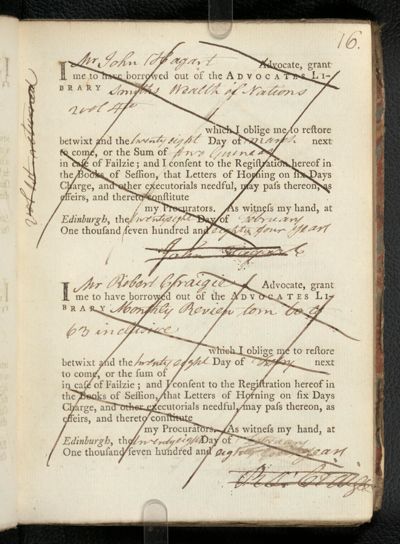 16.
I Mr John Hagart Advocate, grant
me to have borrowed out of the ADVOCATES LI-
BRARY Smiths Wealth of Nations
2 vol 4to
which I oblige me to restore
betwixt and the twenty eight Day of march next
to come, or the Sum of five Guineas
in case of Failzie; and I consent to the Registration hereof in
the Books of Session, that Letters of Horning on six Days
Charge, and other executorials needful, may pass thereon, as
effeirs, and thereto constitute
my Procurators. As witness my hand, at
Edinburgh, the twenty eight Day of February
One thousand seven hundred and eighty four years
John Hagart
I Mr Robert Craigie Advocate, grant
me to have borrowed out of the ADVOCATES LI-
BRARY Monthly Review tom
63 inclusive
which I oblige me to restore
betwixt and the twenty eight Day of next
to come, or the sum of
in case of Failzie; and I consent to the Registration hereof in
the Books of Session, that Letters of Horning on six Days
Charge, and other executorials needful, may pass thereon, as
effeirs, and thereto constitute
my Procurators. As witness my hand, at
Edinburgh, the twenty eight Day of February
One thousand seven hundred and eighty four years
Ro. Craigie